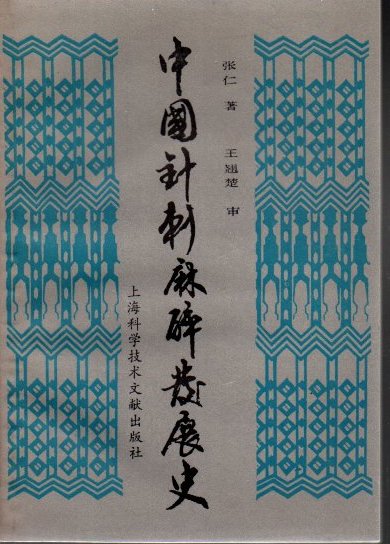 张仁 著 王翘楚 审
中國针刺麻醉发展史
上海科学技术文献出版社